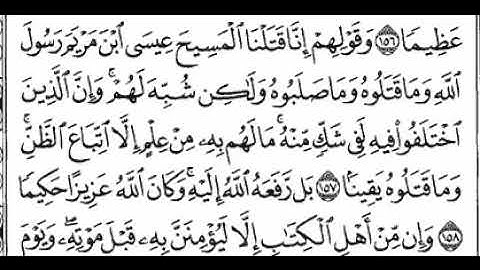 عَظِيمًا ١٥٦ وَقَوْلِهِمْ إِنَّا قَتَلْنَا ٱلْمَسِيحَ عِيسَى ٱبْنَ مَرْيَمَ رَسُولَ
ٱللَّهِ وَمَا قَتَلُوهُ وَمَا صَلَبُوهُ وَلَـٰكِن شُبِّهَ لَهُمْ ۚ وَإِنَّ ٱلَّذِينَ
ٱخْتَلَفُوا۟ فِيهِ لَفِى شَكٍّ مِّنْهُ ۚ مَا لَهُم بِهِۦ مِنْ عِلْمٍ إِلَّا ٱتِّبَاعَ ٱلظَّنِّ ۚ
وَمَا قَتَلُوهُ يَقِينًۢا ١٥٧ بَل رَّفَعَهُ ٱللَّهُ إِلَيْهِ ۚ وَكَانَ ٱللَّهُ عَزِيزًا حَكِيمًا
١٥٨ وَإِن مِّنْ أَهْلِ ٱلْكِتَـٰبِ إِلَّا لَيُؤْمِنَنَّ بِهِۦ قَبْلَ مَوْتِهِۦ ۖ وَيَوْمَ